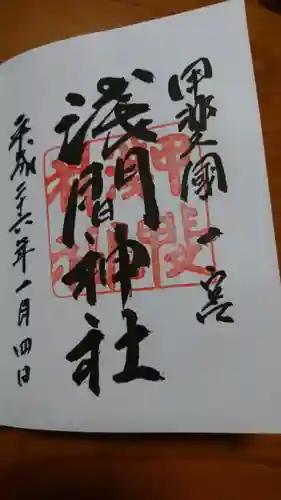 甲斐國一宮
浅間神社
平成二十六年一月四日